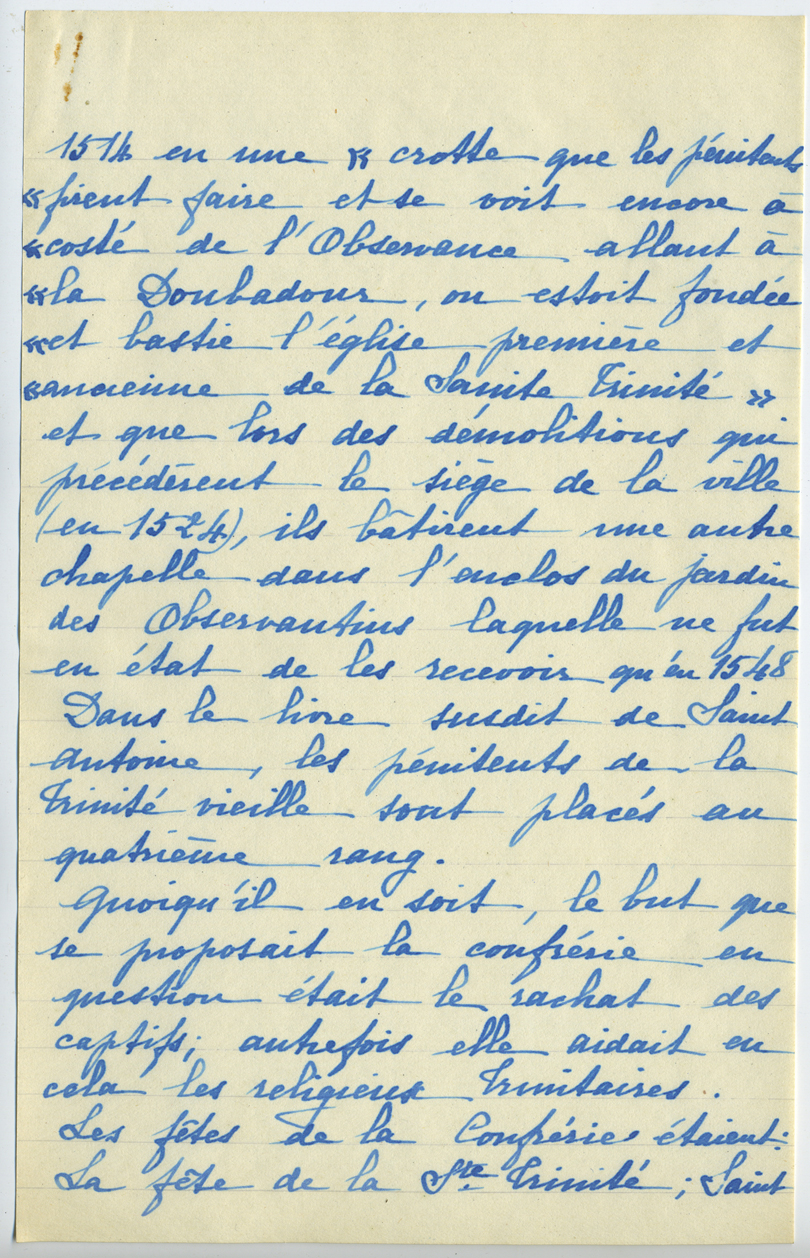 1514 en une « crotte que les pénitents
« firent faire et se voit encore à
« costé de l'Observance allant à
« la Doubadour, ou estoit fondée
« et bastie l'église première et
« ancienne de la Sainte Trinité »
et que lors des démolitions qui
précédèrent le siège de la ville
(en 1524), ils bâtirent une autre
chapelle dans l'enclos du jardin
des Observantins laquelle ne fut
en état de les recevoir qu'en 1548
Dans le livre susdit de Saint
Antoine, les pénitents de la
Trinité vieille sont placés au
quatrième rang.
Quoiqu'il en soit, le but que
se proposait la confrérie en
question était le rachat des
captifs; autrefois elle aidait en
cela les religieux Trinitaires.
Les fêtes de la Confrérie étaient:
La fête de la Ste Trinité; Saint